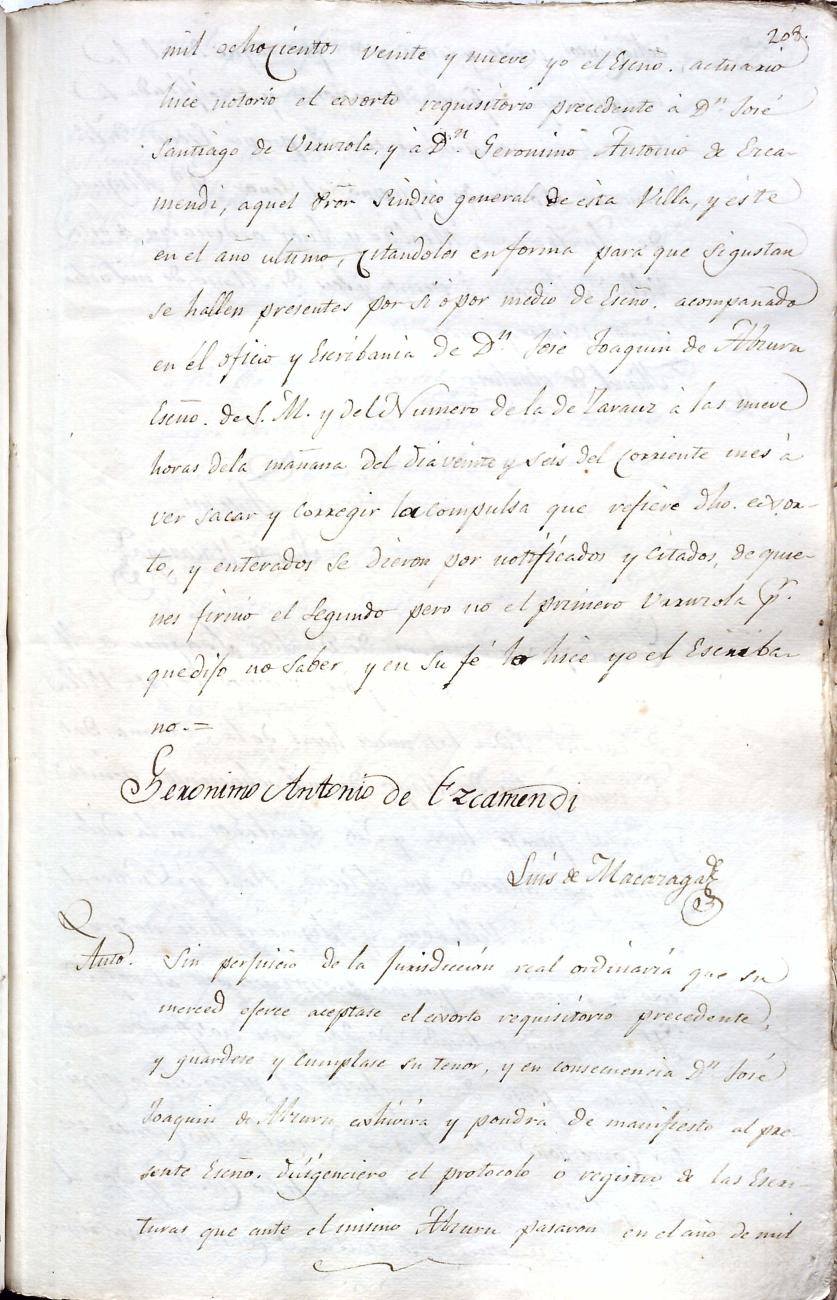 208.
mil ochocientos veinte y nueve, yo el Esnõ. actuario
hice notorio el exorto requisitorio precedente à Dn. José
Santiago de Urruzola, y à Dn. Geronimo Antonio de Ezca-
mendi, aquel Prõr Sindico general de esta Villa, y este
en el año ultimo, citandoles en forma para que si gustan
se hallen presentes por si o por medio de Esnõ. acompañado
en él oficio y Escribania de Dn José Joaquin de Alzuru
Esnõ. de S. M. y del Numero de la de Zarauz à las nueve
horas dela mañana del dia veinte y seis del corriente mes à
ver sacar y corregir la compulsa que refiere dho. exor-
to, y enterados se dieron por notificados y citados, de quie-
nes firmó el segundo pero no el primero Urruzola pr.
que dijo no saber y en su fé lo hice yo el Escriba-
no.=
Geronimo Antonio de Ezcamendi
Luis de Macazaga
Auto. Sin perjuicio de la Jurisdiccion real ordinaria que su
merced ejerce aceptase el exorto requisitorio precedente,
y guardese y cumplase su tenor, y en consecuencia Dn José
Joaquin de Alzuru exhivirá y pondrá de manifiesto al pre-
sente Esnõ. diligenciero el protocolo o registro de las Escri-
turas que ante el mismo Alzuru pasaron en el año de mil